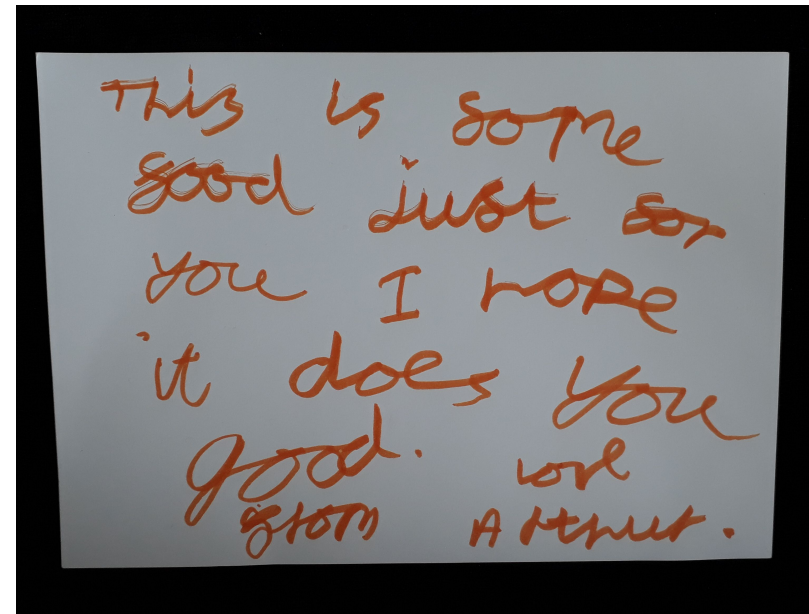 This is some
food just for
you I hope
it does you
good. love
from Arthur.